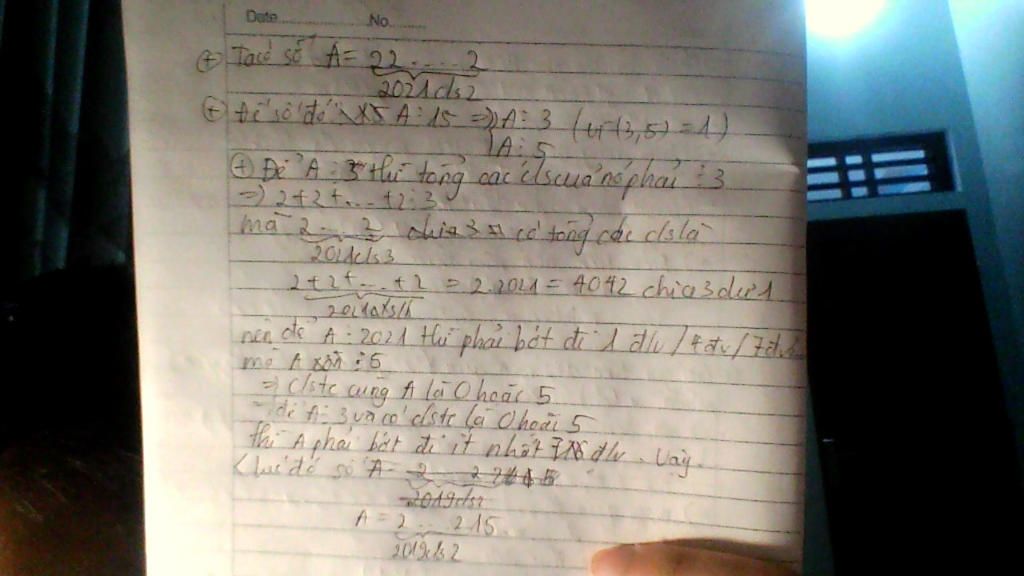 Date............No.......
⊕ Ta có số A = 22....2
2021 cls 2
⊕ Để số đó A⋮15 => A⋮3 (vì (3,5) = 1)
A⋮5
⊕ Để A⋮3 thì tổng các cls của nó phải ⋮3
=> 2+2+...+2⋮3
mà 2...2 có tổng các cls là
2021cls
2+2+...+2 = 2.2021 = 4042 chia 3 dư 1
nên để A⋮2021 thì phải bớt đi 1 đlv/4đv/7đv
mà A ⋮5
=> clstc cùng A là 0 hoặc 5
để A⋮3 và có clstc là 0 hoặc 5
thì A phải bớt đi ít nhất 7 đlv. Vậy
lúc đó số A = 2...2
2019cls2
A = 2...215
2019cls2